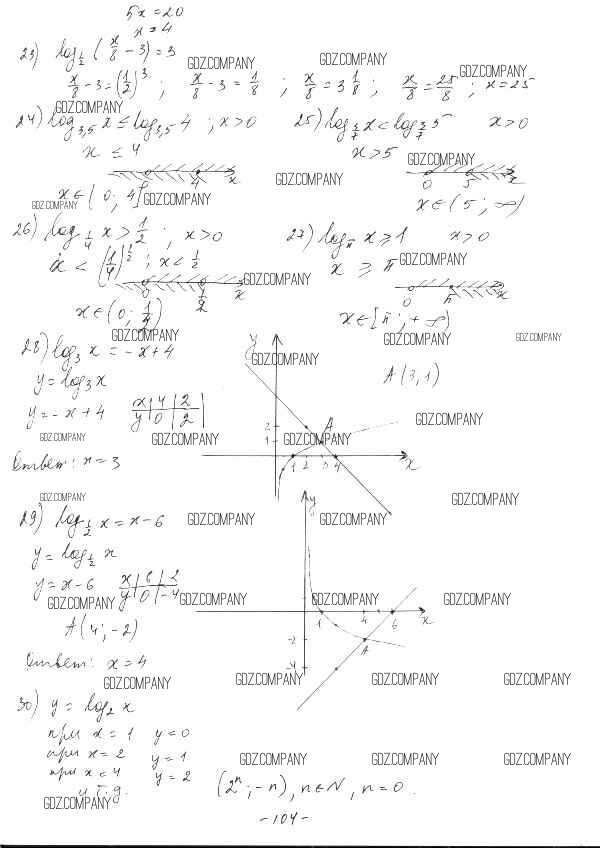 5x = 20
x = 4
23) log_{1/2} (x/8 - 3) = 3
GDZ.COMPANY GDZ.COMPANY
x/8 - 3 = (1/2)^3 ; x/8 - 3 = 1/8 ; x/8 = 3 1/8 ; x/8 = 25/8 ; x = 25
GDZ.COMPANY GDZ.COMPANY
24) log_{3,5} x ≤ log_{3,5} 4 ; x > 0 25) log_{3/7} x < log_{3/7} 5 x > 0
x ≤ 4 x > 5
GDZ.COMPANY
4 x 0 5 x
GDZ.COMPANY
x ∈ ( 0 ; 4] x ∈ (5 ; ∞)
GDZ.COMPANY GDZ.COMPANY
26) log_{1/4} x > 1/2 ; x > 0 27) log_π x ≥ 1 x > 0
x < (1/4)^{1/2} ; x < 1/2 x ≥ π
GDZ.COMPANY GDZ.COMPANY
0 1/2 x 0 π x
x ∈ (0 ; 1/2) x ∈ [π ; + ∞)
GDZ.COMPANY GDZ.COMPANY GDZ.COMPANY
28) log_3 x = -x + 4 y
GDZ.COMPANY
y = log_3 x A (3, 1)
y = -x + 4 x | 4 | 2
y | 0 | 2
GDZ.COMPANY
2 1 A
GDZ.COMPANY GDZ.COMPANY GDZ.COMPANY
Ответ: x = 3 1 2 3 4 x
GDZ.COMPANY GDZ.COMPANY
29) log_{1/2} x = x - 6 y
GDZ.COMPANY GDZ.COMPANY
y = log_{1/2} x
y = x - 6 x | 6 | 2
y | 0 | -4
GDZ.COMPANY GDZ.COMPANY GDZ.COMPANY GDZ.COMPANY
1 4 6 x
A (4 ; -2) -2 A
Ответ: x = 4 -4
GDZ.COMPANY GDZ.COMPANY GDZ.COMPANY GDZ.COMPANY
30) y = log_2 x
при x = 1 y = 0
при x = 2 y = 1
GDZ.COMPANY GDZ.COMPANY GDZ.COMPANY
при x = 4 y = 2 (2^n ; -n), n ∈ N, n = 0.
и т.д.
GDZ.COMPANY
- 104 -